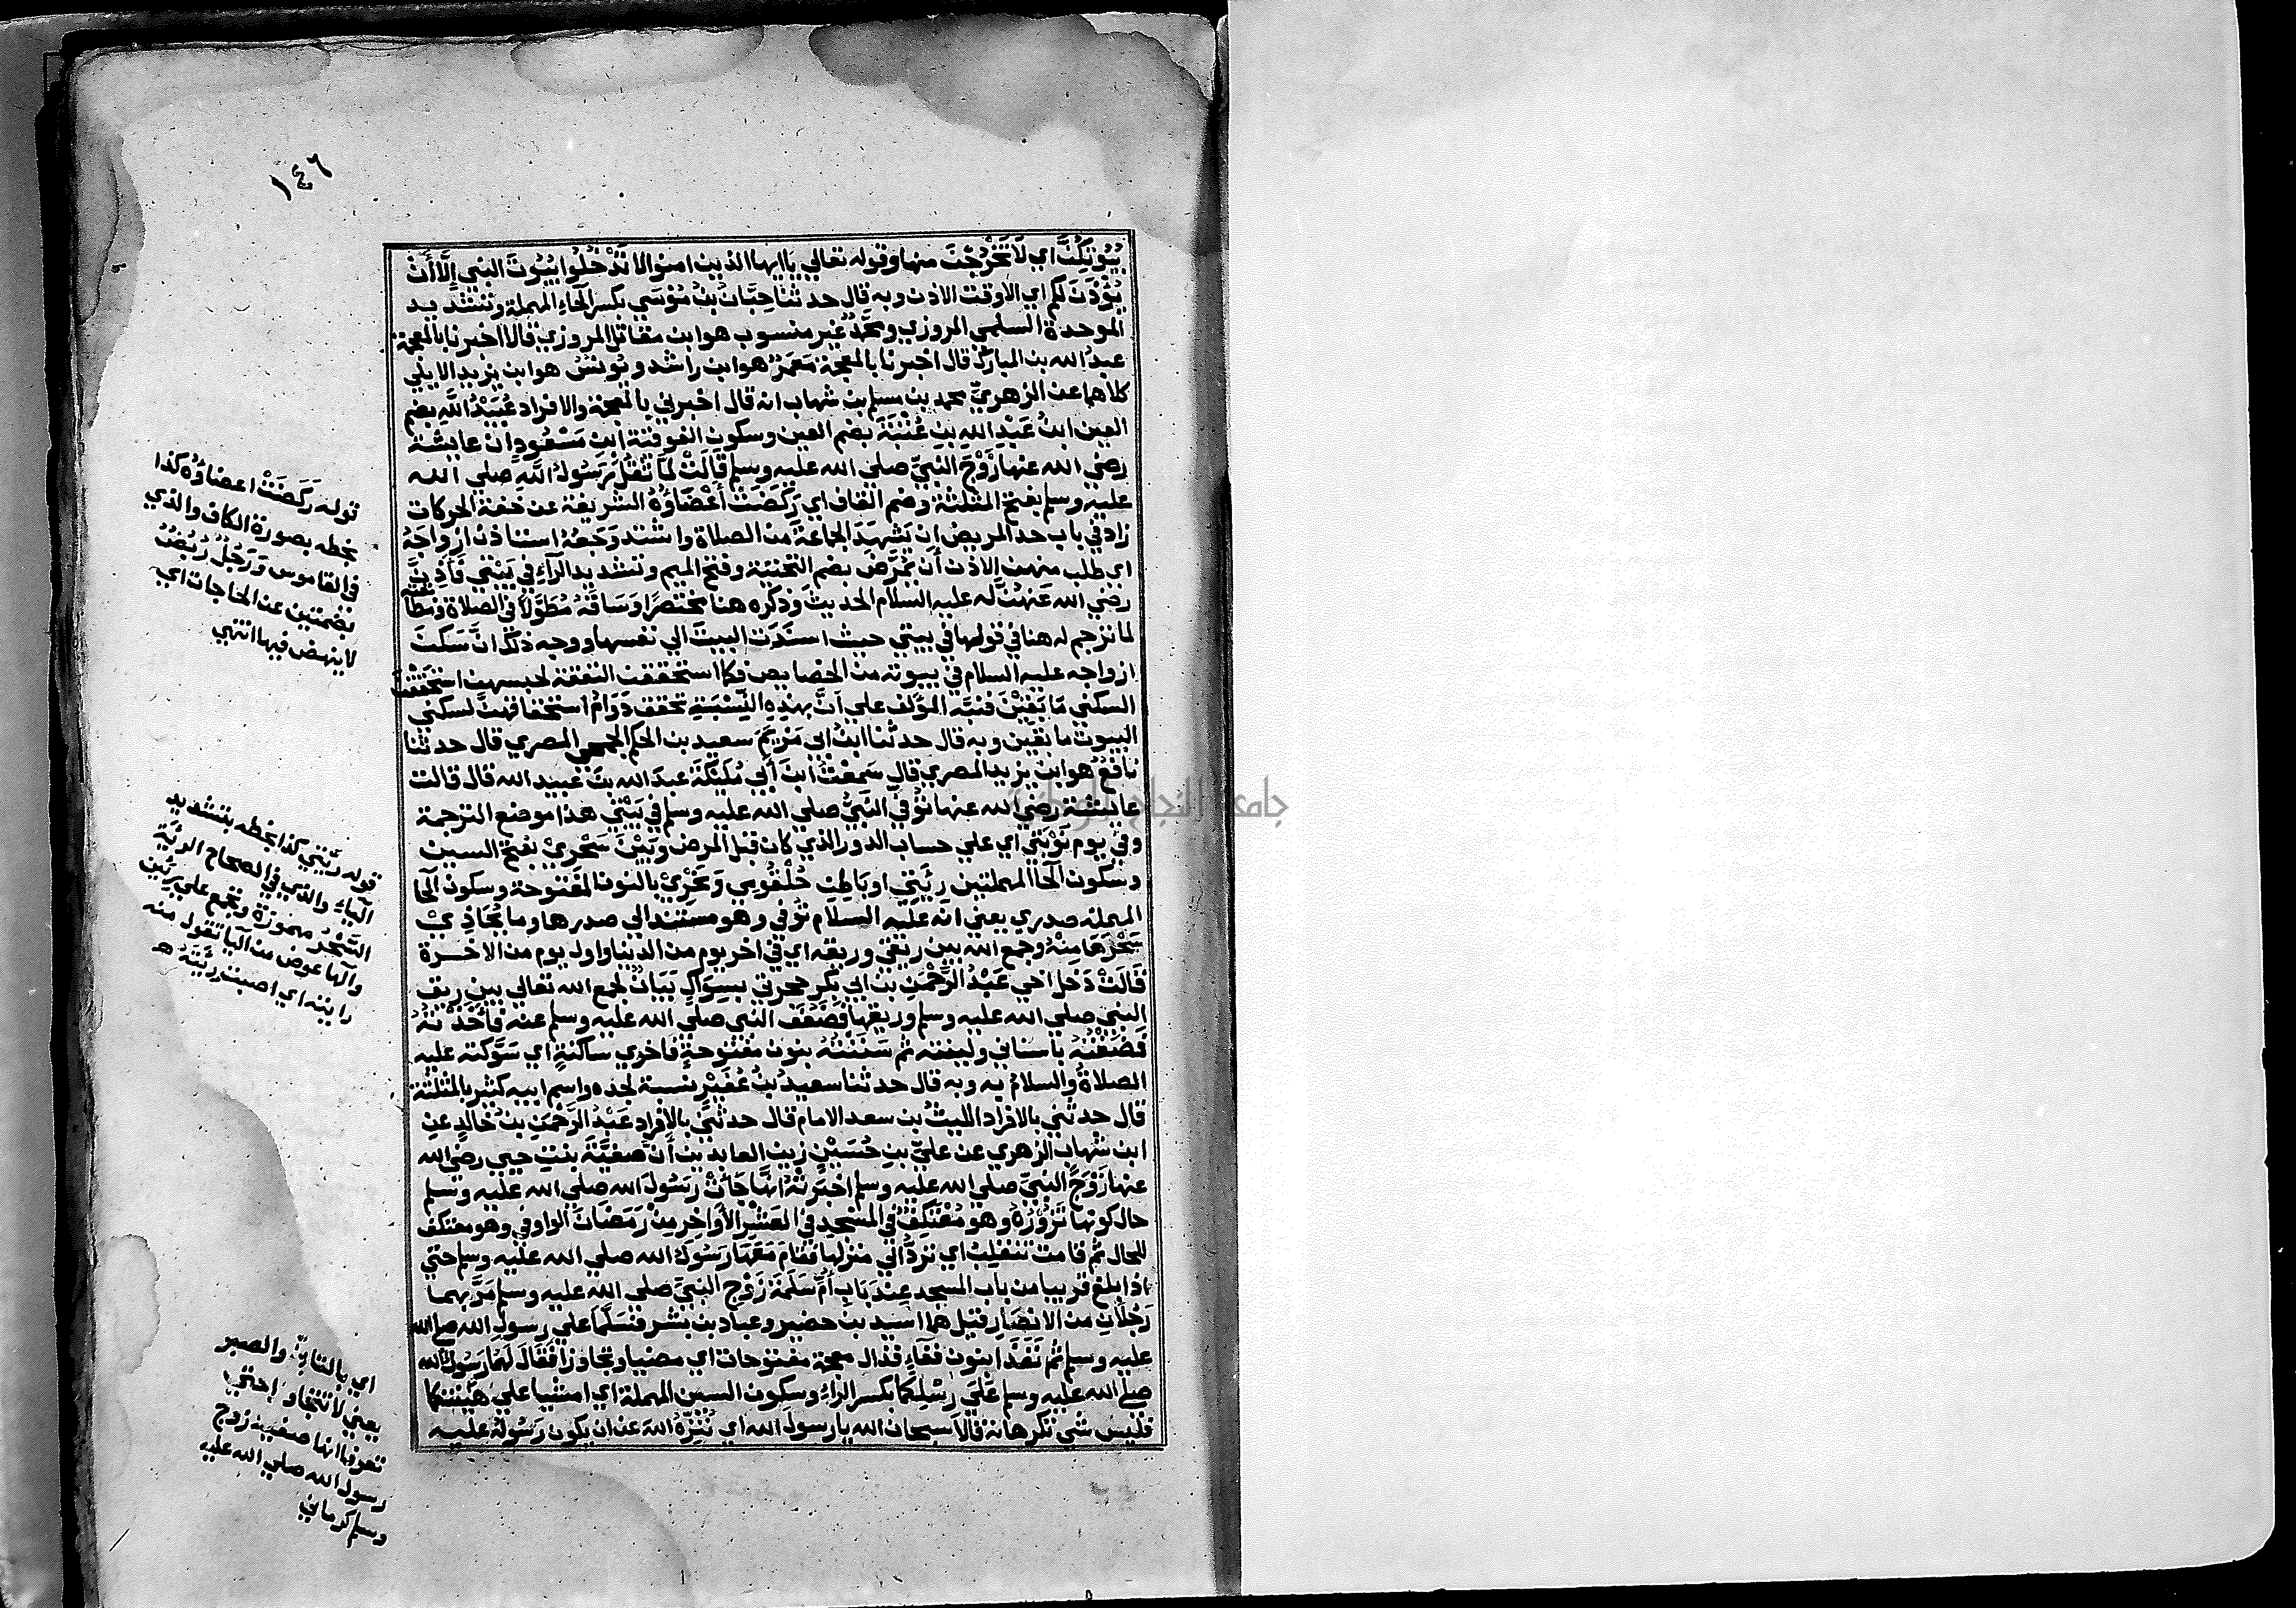 ١٤٦
بُيُوتِكُنَّ اي لَا تَخْرُجْنَ منها وقوله تعالي يا ايها الذين امنوا لا تَدْخُلُوا بُيُوتَ النبي إِلَّا أَنْ
يُؤْذَنَ لكم اي الا وقت الاذن وبه قال حدثنا حِبَّانُ بْنُ مُوْسَي بكسر الحاء المهملة وتشديد
الموحدة السلمي المروزي ومحَمَّدٌ غير منسوب هو ابن مقاتل المروزي قالا اخبرنا بالمعجمة
عبدُ الله بن المبارك قال اخبرنا بالمعجمة مَعْمَرٌ هو ابن راشد ويُونسُ هو ابن يزيد الايلي
كلاهما عن الزهريّ محمد بن مسلم بن شهاب انه قال اخبرني بالمعجمة والافراد عُبَيْدُ اللَّهِ بضم
العين ابنُ عَبْدِ اللهِ بنِ عُتْبَةَ بضم العين وسكون الفوقية ابنِ مَسْعُودٍ انّ عايشة
رضي الله عنها زَوْجَ النبيّ صلي الله عليه وسلم قَالَتْ لَمَّا ثَقُلَ رَسُولُ الله صلي الله
عليه وسلم بفتح المثلثة وضم القاف اي رَكَضَتْ أَعْضَاؤُهُ الشريفة عن خفة الحركات
زاد في باب حد المريض ان يَشْهَدَ الجماعةَ من الصلاة واشتد وَجَعُهُ استاذن ازواجَهُ
اي طلب منهن الاذن أَن يُمَرَّضَ بضم التحتية وفتح الميم وتشديد الرآءِ في بَيْتي فَأَذِنَّ
رضي الله عَنهُنَّ لَه عليه السلام الحديثَ وذكره هنا مختصرًا وسَاقَهُ مُطَوَّلًا في الصلاة ومطابَقَتُه
لما ترجم له هنا في قولها في بيتي حيث اسنَدَت البيتَ الي نفسها ووجه ذلك انّ سَكَنَ
ازواجه عليه السلام في بيوته من الخصايص فكما استحققن النفقة لحبسهن استحَقَقْنَ
السكني مَا بَقَيْنَ فنبّه المؤلف علي انّ بهذهِ النِّسْبَةِ تحقق دَوَامُ استحقاقهنّ لسكني
البيوت ما بقين وبه قال حدثنا ابنُ ابي مَرْيَمَ سعيد بن الحكم الجمحي المصري قال حدثنا
نافعٌ هو ابن يزيد المصري قال سَمِعْتُ ابنَ أَبِي مُلَيْكَةَ عبدَ الله بنَ عبيد الله قال قالت
عايشة رضي الله عنها تُوُفّيَ النبيُّ صلي الله عليه وسلم في بَيْتِي هذا موضع الترجمة
وفي يوم نَوْبَتِي اي علي حساب الدور الذي كان قبل المرض وبَيْنَ سَحْرِيْ بفتح السين
وسكون الحآ المهملتين رِئَتِي او بَاطِنِ حُلْقُومِي وَنَحْرِيْ بالنون المفتوحة وسكون الحآ
المهملة صدري يعني انه عليه السلام تُوُفّي وهو مستند الي صدرها وما يُحَاذِيْ
سَحْرَهَا مِنْهُ وجمع الله بين ريقي وريقه اي في اخر يوم من الدنيا واول يوم من الاخرة
قَالَتْ دَخل اخي عَبْدُ الرَّحْمَنِ بن ابي بَكْرٍ حجرتي بِسِوَاكٍ بَيَانٌ لجمع الله تعالي بين ريق
النبي صلي الله عليه وسلم وريقها فَضَعُفَ النبي صلي الله عليه وسلم عنه فأخَذْتُهُ
فَمَضَغْتُهُ باسناني ولينته ثم سَنَنْتُهُ بنون مفتوحةٍ فاخري ساكنةٍ اي سَوَّكتُه عليه
الصلاةُ والسلامُ به وبه قال حدثنا سعيدُ بنُ عُفَيْرٍ نسبة لجده واسم ابيه كثير بالمثلثة
قال حدثني بالافراد الليثُ بن سعد الامام قال حدثني بالافراد عَبْدُ الرَّحْمَنِ بنُ خالدٍ عنِ
ابن شهابٍ الزهري عن عليّ بنِ حُسَيْنٍ زين العابدين أَنَّ صَفِيَّةَ بنتِ حيي رضي الله
عنها زَوْجَ النبيّ صلي الله عليه وسلم اخْبَرَتْهُ انَّهَا جَاءَتْ رسُولَ الله صلي الله عليه وسلم
حال كونها تَزُورُهُ وهو مُعْتَكِفٌ في المسْجِدِ في العَشْرِ الأَوَاخِرِ مِنْ رَمَضَانَ الواو في وهو معتكف
للحال ثم قامت تنقلِبُ اي تردّ الي منزلها فقامَ مَعَهَا رَسُولُ الله صلي الله عليه وسلم حتي
اذا بلغ قريبا من باب المسجد عِندَ بَابِ أُمِّ سَلَمَةَ زَوْجِ النبيِّ صلي الله عليه وسلم مَرَّ بهما
رَجُلَانِ من الانصَارِ قيل هما اسيد بن حضير وعباد بن بشر فَسَلَّمَا علي رسولِ الله صلي الله
عليه وسلم ثم نَفَذَا بنون ففآءٍ فذال معجمة مفتوحات اي مضيا وتجاوزا فَقَالَ لَهُمَا رَسُولُ الله
صلي الله عليه وسلم عَلَي رِسْلِكُمَا بكسر الراءِ وسكون السين المهملة اي امشيا علي هَيْنَتكما
فليس شي تكرهانه قالا سبحان الله يا رسولَ الله اي نُنَزِّهُ اللهَ عن ان يكون رَسُولُهُ عليه
قوله رَكَضَتْ اعضاؤُه كذا
بخطه بصورة الكاف والذي
في القاموس ورَجُلٌ رُبُضٌ
بضمتين عن الحاجات اي
لا ينهض فيها انتهي
قوله ريّتي كذا بخطه بتشديد
اليآءِ والذي في الصحاح الرئة
السّحْرُ مهموزة وتجمع علي رئين
والهآ عوض من اليآ تقول منه
رايته اي اصبت رِئَتَه ه
اي بالتاني والصبر
يعني لا تتجاوزا حتي
تعرفا انها صفية زوج
رسول الله صلي الله عليه
وسلم كرماني
جامعة النجاح الوطنية